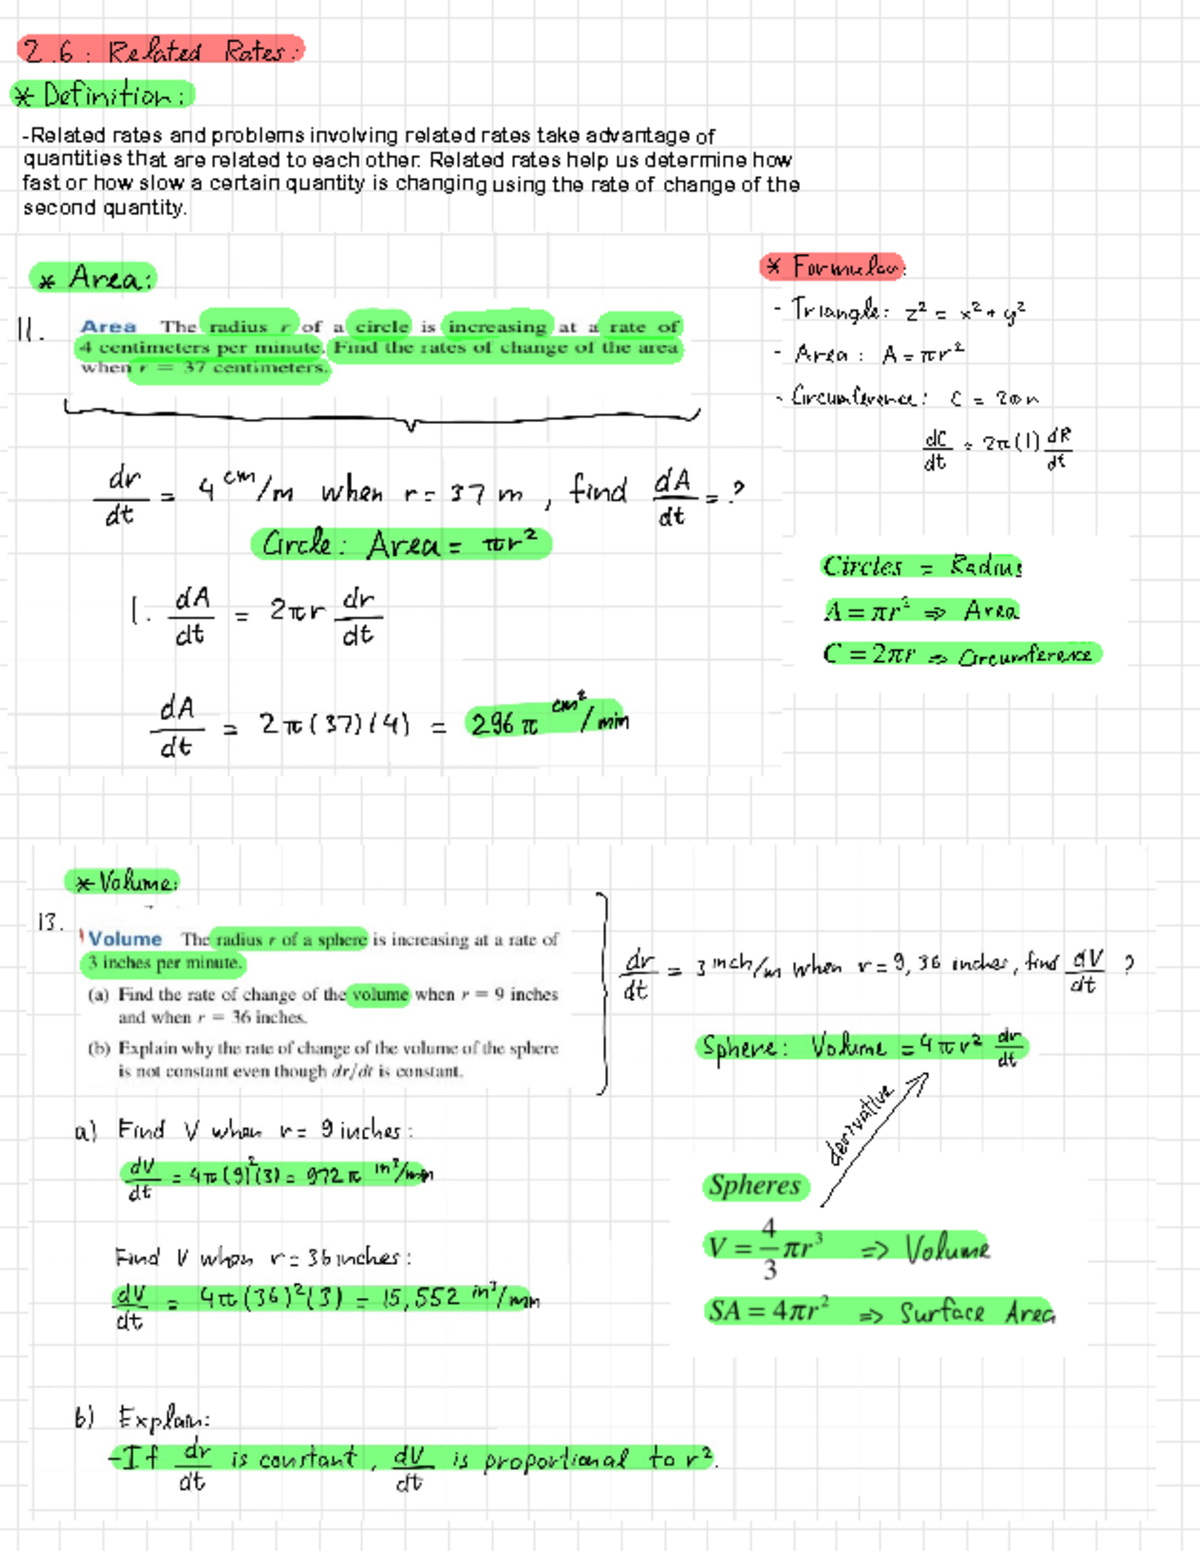 2.6: Related Rates:
* Definition:
-Related rates and problems involving related rates take advantage of
quantities that are related to each other. Related rates help us determine how
fast or how slow a certain quantity is changing using the rate of change of the
second quantity.
* Area:
11. Area The radius r of a circle is increasing at a rate of
4 centimeters per minute. Find the rates of change of the area
when r = 37 centimeters.
dr/dt = 4 cm/m when r = 37 m, find dA/dt = ?
Circle: Area = πr²
1. dA/dt = 2πr dr/dt
dA/dt = 2π(37)(4) = 296π cm²/min
* Formulas:
- Triangle: z² = x² + y²
- Area: A = πr²
- Circumference: C = 2πr
dC/dt = 2π(1) dR/dt
Circles = Radius
A = πr² => Area
C = 2πr => Circumference
* Volume:
13. Volume The radius r of a sphere is increasing at a rate of
3 inches per minute.
(a) Find the rate of change of the volume when r = 9 inches
and when r = 36 inches.
(b) Explain why the rate of change of the volume of the sphere
is not constant even though dr/dt is constant.
dr/dt = 3 inch/m when r = 9, 36 inches, find dV/dt ?
Sphere: Volume = 4πr² dr/dt
derivative
Spheres
V = 4/3 πr³ => Volume
SA = 4πr² => Surface Area
a) Find V when r = 9 inches:
dV/dt = 4π(9)²(3) = 972π in³/min
Find V when r = 36 inches:
dV/dt = 4π(36)²(3) = 15,552 in³/min
b) Explain:
-If dr/dt is constant, dV/dt is proportional to r².